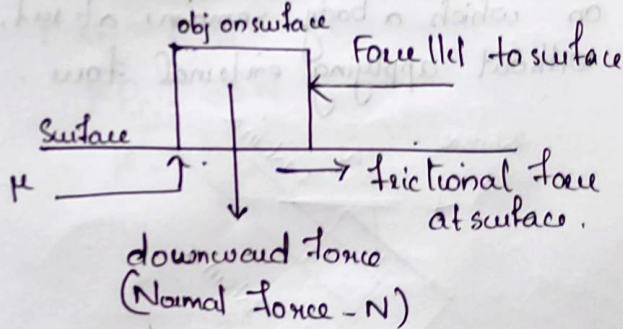 obj on surface
Force llel to surface
Surface
μ
frictional force
at surface.
downward force
(Normal force - N)